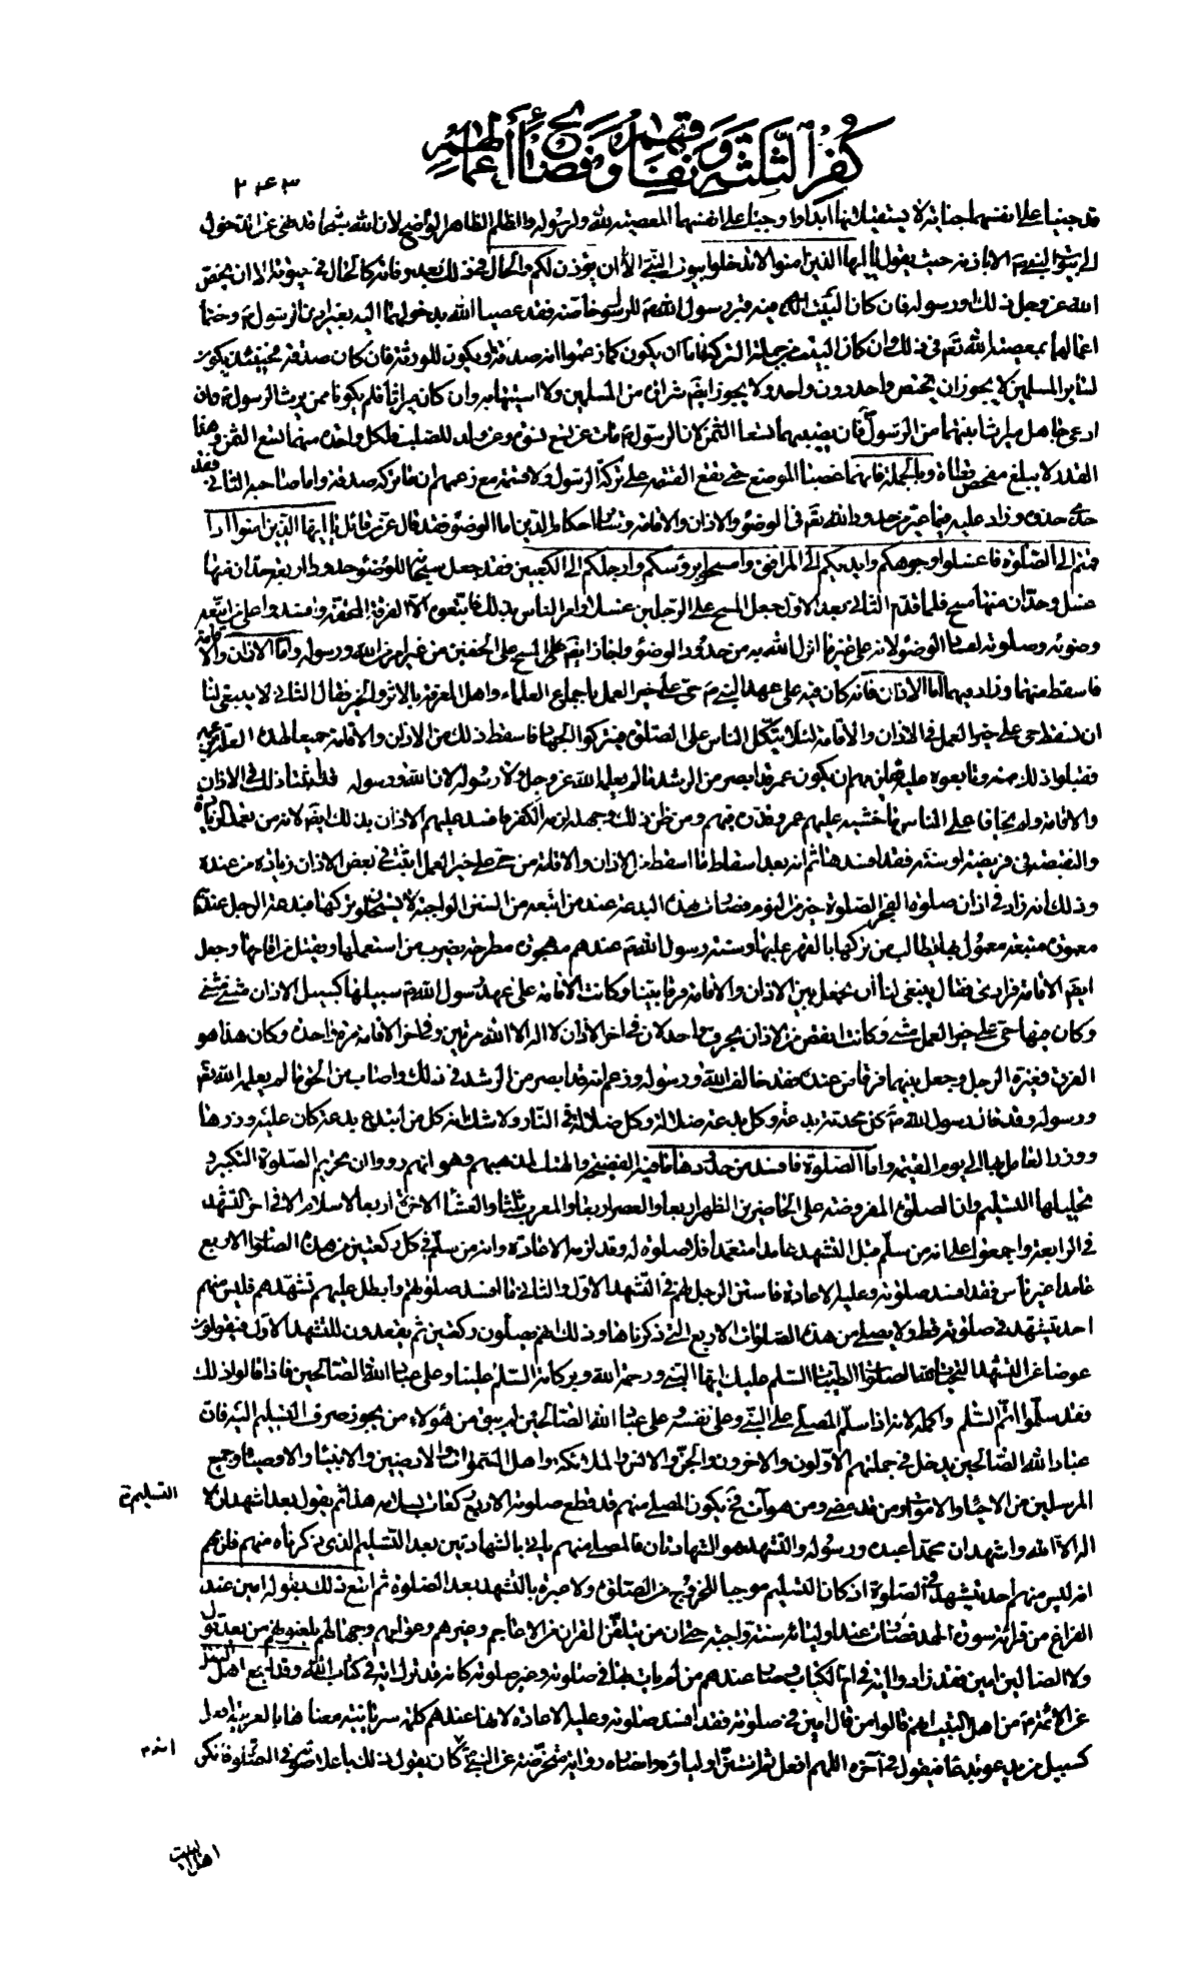 كفر الثلثة و نفاقهم و فضائح أعمالهم
٢٤٣
قد جنيا على انفسهما جناية لا يستقيلانها ابدا و جنيا على انفسهما المعصية لله و لرسوله و الظلم الظاهر الواضح لان الله سبحانه قد نهى عن الدخول
الى بيوت النبي ص الا باذنه حيث يقول يا ايها الذين امنوا لا تدخلوا بيوت النبي الا ان يؤذن لكم و الحال في ذلك بعد وفاته كالحال في حيوته الا ان يخص
الله عز و جل ذلك او رسوله فان كان البيت الذي فيه قبر رسول الله ص للرسول خاصة فقد عصيا الله بدخولهما اليه بغير اذن الرسول ص و ختما
اعمالهما بمعصية الله تعم في ذلك و ان كان البيت من جملة التركة فاما ان يكون كما زعموا انه صدقة او يكون للورثة فان كان صدقة فحينئذ يكون
لسائر المسلمين لا يجوز ان يختص واحد دون واحد و لا يجوز ايضم شراؤه من المسلمين و لا استيهابه و ان كان ميراثا فلم يكونا ممن يرث الرسول ص و ان
ادعى جاهل ميراث ابنتيهما من الرسول ص فان نصيبهما تسعا الثمن لان الرسول ص مات عن تسع نسوة و عن ولد للصلب فلكل واحدة منهما تسع الثمن و هذا
القدر لا يبلغ مفحص قطاة و بالجملة فانهما غصبا الموضع حتى تقع القسمة على تركة الرسول و لا قسمة مع زعمهم ان ما تركه صدقة و اما صاحبه الثاني فقد
حذى حذوه و زاد عليه فيما غير من حدود الله تعم في الوضوء و الاذان و الاقامة و احكام الدين اما الوضوء فقد قال عز من قائل يا ايها الذين امنوا اذا
قمتم الى الصلوة فاغسلوا وجوهكم و ايديكم الى المرافق و امسحوا برؤسكم و ارجلكم الى الكعبين فقد جعل سبحانه للوضوء حدودا اربعة حدان منها
غسل و حدان منها مسح فلما قدم الثاني بعد الاول جعل المسح على الرجلين غسلا و امر الناس بذلك فاتبعوه الا الفرقة المحقة و افسد على من اتبعه
وضوئه و صلوته لفساد الوضوء لانه على غير ما انزل الله به من حدود الوضوء و اجاز ايضم المسح على الخفين من غير امر من الله و رسوله و اما الاذان و الاقامة
فاسقط منهما و زاد فيهما اما الاذان فانه كان فيه على عهد النبي ص حي على خير العمل باجماع العلماء و اهل المعرفة بالاثر و الخبر فقال الثاني لا ينبغي لنا
ان نسقط حي على خير العمل في الاذان و الاقامة لئلا يتكل الناس على الصلوة فيتركوا الجهاد فاسقط ذلك من الاذان و الاقامة جميعا لهذه العلة بزعمه
فقبلوا ذلك منه و تابعوه عليه ان يكون عمر قد ابصر من الرشد ما لم يعلمه الله عز و جل و لا رسوله لان الله و رسوله قد اثبتا ذلك في الاذان
والاقامة و لم يخافا على الناس ما خشيه عليهم عمر و قدره فيهم و من ظن ذلك و جهله لزمه الكفر فافسد عليهم الاذان بذلك ايضم لانه من تعمد الزيادة
و النقيصة في فريضة او سنة فقد افسدها ثم انه بعد اسقاط ما اسقط من الاذان و الاقامة من حي على خير العمل اثبت في بعض الاذان زيادة من عنده
و ذلك انه زاد في اذان صلوة الفجر الصلوة خير من النوم فصارت هذه البدعة عند من اتبعه من السنن الواجبة لا يستحلون تركها فبدعة الرجل عندهم
معمورة متبعة معمول بها يطالب من تركها بالقهر عليها و سنة رسول الله ص عندهم مهجورة مطرحة يضرب من استعملها و يقتل من اقامها و جعل
ايضم الاقامة فرادى فقال ينبغي لنا ان نجعل بين الاذان و الاقامة فرقا بينا و كانت الاقامة على عهد رسول الله ص سبيلها كسبيل الاذان مثنى مثنى
و كان فيها حي على خير العمل مثنى و كانت انقص من الاذان بحرف واحد لان في اخر الاذان لا اله الا الله مرتين و في اخر الاقامة مرة واحدة و كان هذا هو
الفرق فغيره الرجل و جعل بينهما فرقا من عنده فقد خالف الله و رسوله و زعم انه قد ابصر من الرشد في ذلك و اصاب من الحق ما لم يعلمه الله تعم
و رسوله و قد قال رسول الله ص كل محدثة بدعة و كل بدعة ضلالة و كل ضلالة في النار و لا شك انه كل من ابتدع بدعة كان عليه وزرها
و وزر العامل بها الى يوم القيمة و اما الصلوة فافسد من حدودها ما فيه الفضيحة و الهتك لمذهبهم و هو انهم رووا ان تحريم الصلوة التكبير و
تحليلها التسليم و ان الصلوة المفروضة على الحاضرين الظهر اربعا و العصر اربعا و المغرب ثلثا و العشاء الاخرة اربعا لا سلام الا في اخر التشهد
في الرابعة و اجمعوا على انه من سلم قبل التشهد عامدا متعمدا فلا صلوة له و قد لزمه الاعادة و انه من سلم في كل ركعتين من هذه الصلوة الاربع
عامدا غير ناس فقد افسد صلوته و عليه الاعادة فاستن الرجل لهم في التشهد الاول و الثاني ما افسد صلوتهم و ابطل عليهم تشهدهم فليس منهم
احد يتشهد في صلوته قط و لا يصلي من هذه الصلوات الاربع التي ذكرناها و ذلك انهم يصلون ركعتين ثم يقعدون للتشهد الاول فيقولون
عوضا عن التشهد التحيات لله الصلوات الطيبات السلم عليك ايها النبي و رحمة الله و بركاته السلم علينا و على عباد الله الصالحين فاذا قالوا ذلك
فقد سلموا اتم السلم و اكمله لانه اذا سلم المصلي على النبي و على نفسه و على عباد الله الصالحين لم يبق من هؤلاء من يجوز صرف التسليم اليه فان
عباد الله الصالحين يدخل في جملتهم الاولون و الاخرون و الجن و الانس و الملئكة و اهل السموات و الارضين و الانبياء و الاوصياء و جميع
المرسلين من الاحياء و الاموات و من قد مضى و من هو آت فح يكون المصلي منهم قد قطع صلوته الاربع ركعات بسلامه هذا ثم يقول بعد اشهد ان لا
التسليم ثم
اله الا الله و اشهد ان محمدا عبده و رسوله و التشهد هو الشهادتان فالمصلي منهم ياتي بالشهادتين بعد التسليم الذي ذكرناه منهم فلزمهم
انه ليس منهم احد يتشهد في الصلوة اذ كان التسليم موجبا للخروج من الصلوة و لا عبرة بالتشهد بعد الصلوة ثم اتبع ذلك بقوله امين عند
الفراغ من قرائة سورة الحمد فصارت عند اوليائه سنة واجبة حتى ان من يتلقن القران من الاعاجم و غيرهم و عوامهم و جهالهم يلقنونهم من بعد قول
و لا الضالين امين فقد زادوا اية في ام الكتاب و صار عندهم من لم يات بها في صلوته و غير صلوته كانه قد ترك اية من كتاب الله و قد اجمع اهل النقل
عن الائمة ع من اهل البيت انهم قالوا من قال امين في صلوته فقد افسد صلوته و عليه الاعادة لانها عندهم كلمة سريانية معناها بالعربية افعل
كسبيل من يدعو بدعاء فيقول في آخره اللهم افعل ثم استن اولياؤه و انصاره رواية متخرصة عن النبي ص كان يقول ذلك باعلى صوته في الصلوة فانكر
انه ص
اهل البيت